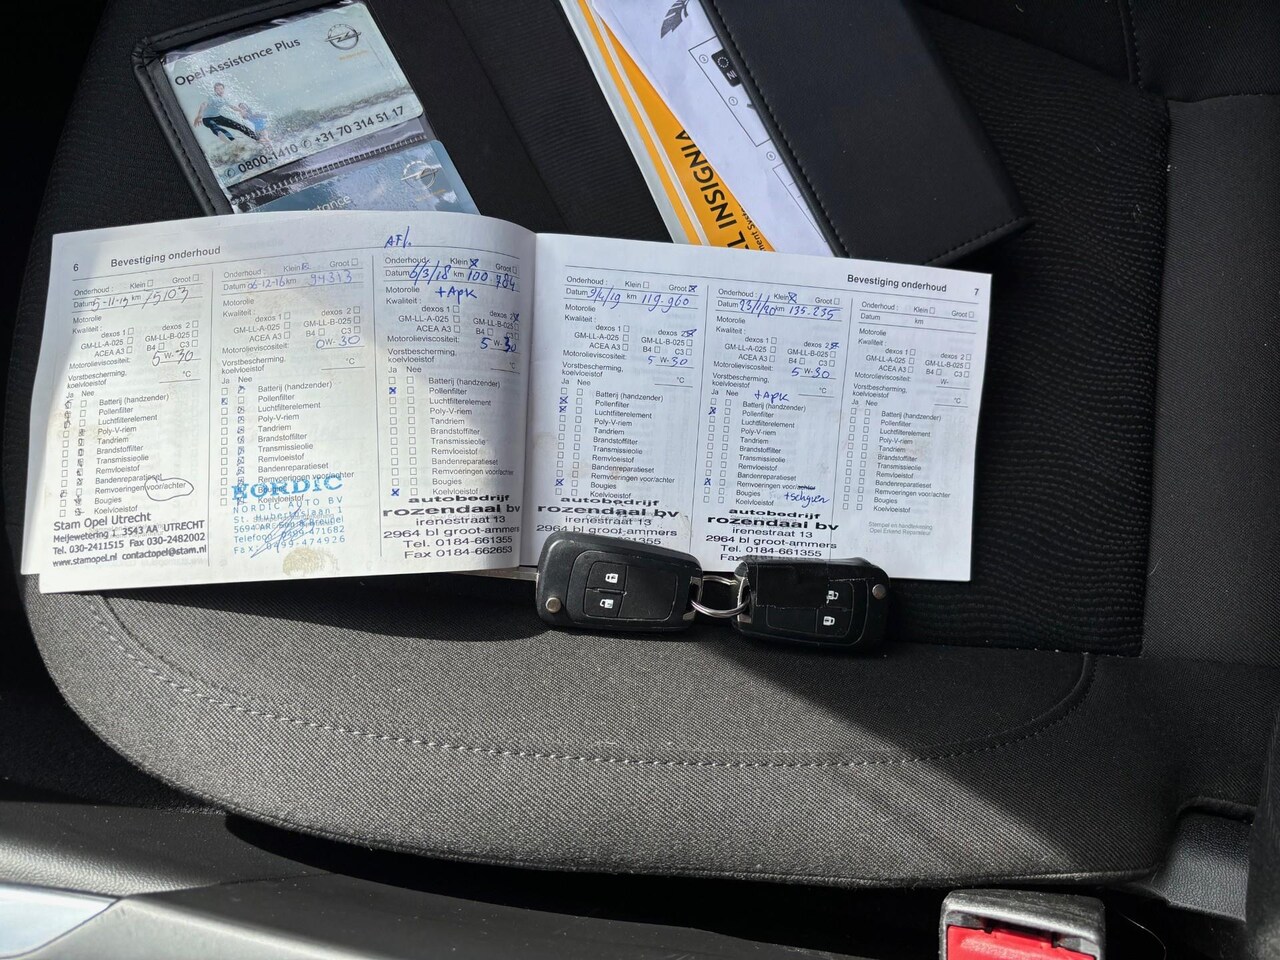 Opel-Assistance Plus
0800-1410 +31 70 314 51 17
stance
NL
L INSIGNIA
6 Bevestiging onderhoud
Onderhoud : Klein Groot
Datum 5-11-15 km
Motorolie
Kwaliteit : dexos 1 dexos 2
GM-LL-A-025 GM-LL-B-025
ACEA A3 B4 C3
Motorolieviscositeit: 5 W- 30
Vorstbescherming,
koelvloeistof °C
Ja Nee
Batterij (handzender)
Pollenfilter
Luchtfilterelement
Poly-V-riem
Tandriem
Brandstoffilter
Transmissieolie
Remvloeistof
Bandenreparatieset
Remvoeringen voor/achter
Bougies
Koelvloeistof
Stam Opel Utrecht
Meijewetering 1 3543 AA UTRECHT
Tel. 030-2411515 Fax 030-2482002
www.stamopel.nl contactopel@stam.nl
Onderhoud : Klein Groot
Datum 06-12-16 km 94313
Motorolie
Kwaliteit : dexos 1 dexos 2
GM-LL-A-025 GM-LL-B-025
ACEA A3 B4 C3
Motorolieviscositeit: 0 W- 30
Vorstbescherming,
koelvloeistof °C
Ja Nee
Batterij (handzender)
Pollenfilter
Luchtfilterelement
Poly-V-riem
Tandriem
Brandstoffilter
Transmissieolie
Remvloeistof
Bandenreparatieset
Remvoeringen voor/achter
Bougies
Koelvloeistof
NORDIC
NORDIC AUTO BV
St. Hubertuslaan 1
Telefoon 0499-471682
Fax: 0499-474926
Afl.
Onderhoud: Klein Groot
Datum 6/3/18 km 100 784
Motorolie +Apk
Kwaliteit: dexos 1 dexos 2
GM-LL-A-025 GM-LL-B-025
ACEA A3 B4 C3
Motorolieviscositeit: 5 W- 30
Vorstbescherming,
koelvloeistof °C
Ja Nee
Batterij (handzender)
Pollenfilter
Luchtfilterelement
Poly-V-riem
Tandriem
Brandstoffilter
Transmissieolie
Remvloeistof
Bandenreparatieset
Remvoeringen voor/achter
Bougies
Koelvloeistof
autobedrijf
rozendaal bv
irenestraat 13
2964 bl groot-ammers
Tel. 0184-661355
Fax 0184-662653
Bevestiging onderhoud 7
Onderhoud : Klein Groot
Datum 9/4/19 km 119.960
Motorolie
Kwaliteit : dexos 1 dexos 2
GM-LL-A-025 GM-LL-B-025
ACEA A3 B4 C3
Motorolieviscositeit: 5 W- 30
Vorstbescherming,
koelvloeistof °C
Ja Nee
Batterij (handzender)
Pollenfilter
Luchtfilterelement
Poly-V-riem
Tandriem
Brandstoffilter
Transmissieolie
Remvloeistof
Bandenreparatieset
Remvoeringen voor/achter
Bougies
Koelvloeistof
autobedrijf
rozendaal bv
irenestraat 13
2964 bl groot-ammers
Tel. 0184-661355
Onderhoud : Klein Groot
Datum 23/1/20 km 135.235
Motorolie
Kwaliteit : dexos 1 dexos 2
GM-LL-A-025 GM-LL-B-025
ACEA A3 B4 C3
Motorolieviscositeit: 5 W- 30
Vorstbescherming,
koelvloeistof °C
Ja Nee +Apk
Batterij (handzender)
Pollenfilter
Luchtfilterelement
Poly-V-riem
Tandriem
Brandstoffilter
Transmissieolie
Remvloeistof
Bandenreparatieset
Remvoeringen voor/achter
Bougies +schijven
Koelvloeistof
autobedrijf
rozendaal bv
irenestraat 13
2964 bl groot-ammers
Tel. 0184-661355
Onderhoud : Klein Groot
Datum km
Motorolie
Kwaliteit : dexos 1 dexos 2
GM-LL-A-025 GM-LL-B-025
ACEA A3 B4 C3
Motorolieviscositeit: W-
Vorstbescherming,
koelvloeistof °C
Ja Nee
Batterij (handzender)
Pollenfilter
Luchtfilterelement
Poly-V-riem
Tandriem
Brandstoffilter
Transmissieolie
Remvloeistof
Bandenreparatieset
Remvoeringen voor/achter
Bougies
Koelvloeistof
Stempel en handtekening
Opel Erkend Reparateur